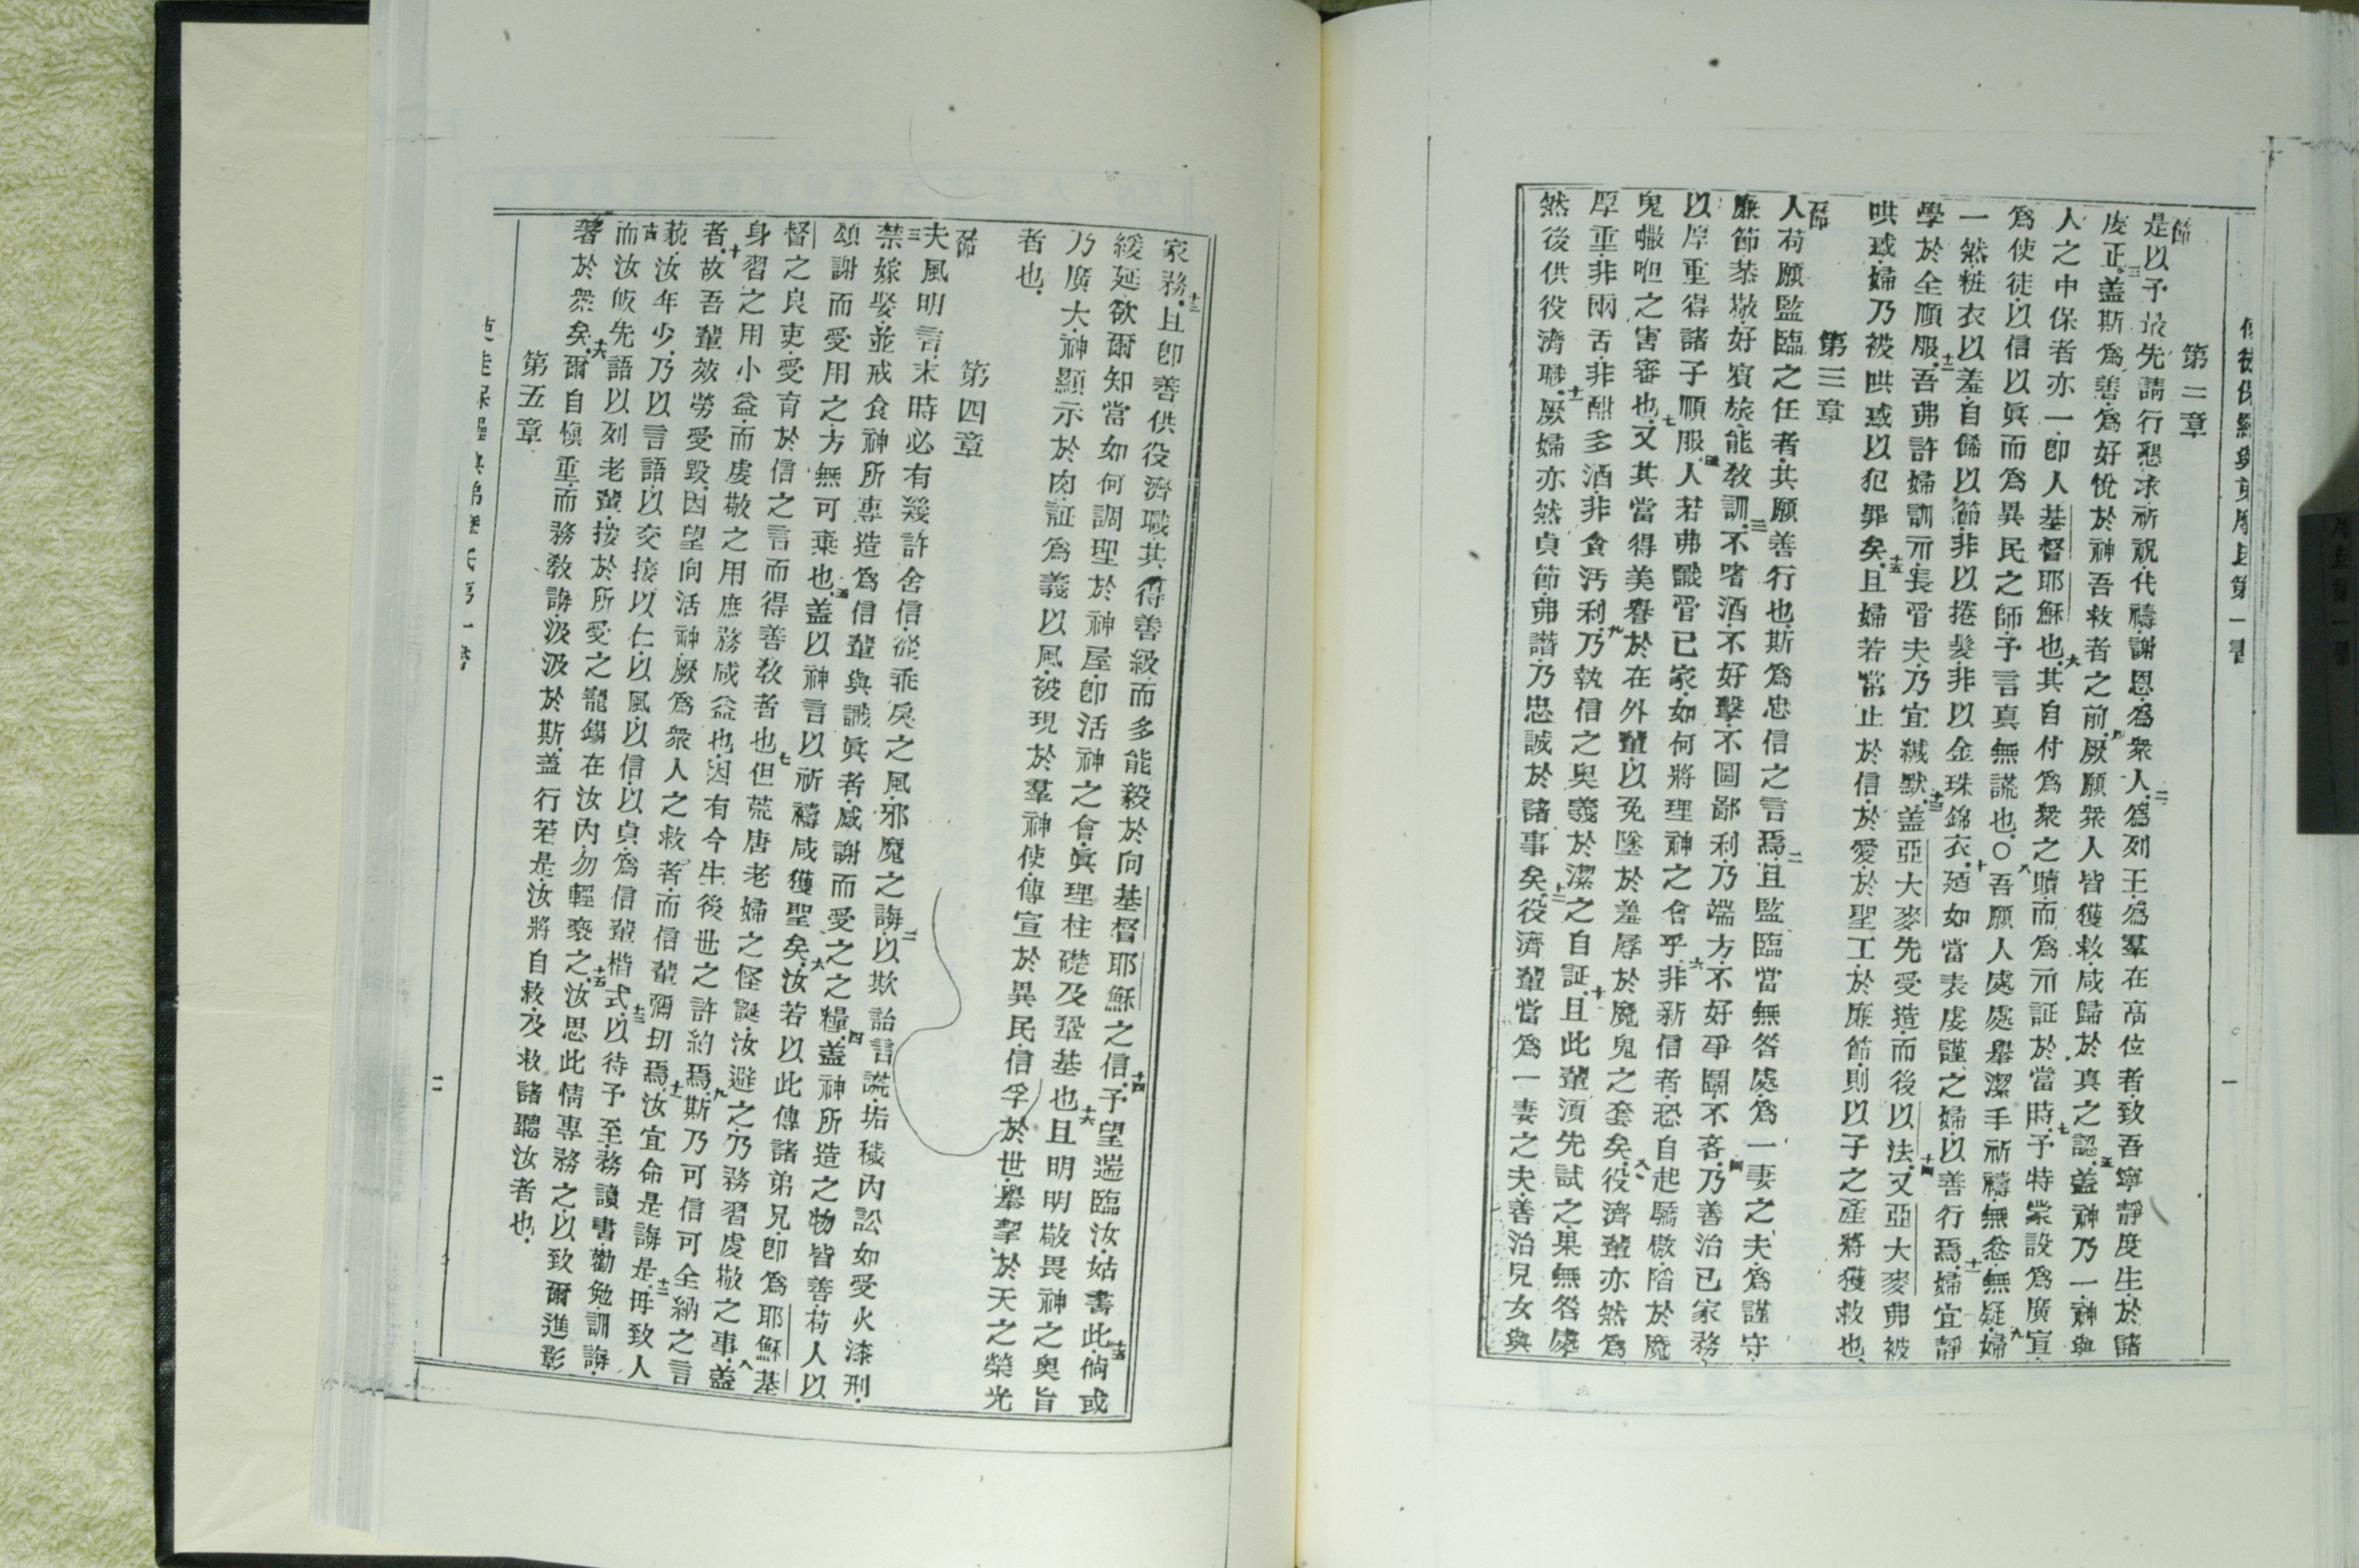 使徒保羅與弟摩氏第一書
第二章
是以予最先請行懇求祈祝代禱謝恩為衆人二為列王為羣在高位者致吾寧靜度生於諸
虔正三蓋斯為善為好悅於神吾救者之前四厥願衆人皆獲救咸歸於真之認五蓋神乃一神與
人之中保者亦一卽人基督耶穌也六其自付為衆之贖而為示証於當時七予特蒙設為廣宣
為使徒以信以眞而為異民之師予言真無謊也○八吾願人處處舉潔手祈禱無忿無疑九婦
一然粧衣以羞自餙以節非以捲髮非以金珠錦衣十廼如當表虔謹之婦以善行焉十一婦宜靜
學於全順服十二吾弗許婦訓示長管夫乃宜緘默十三蓋亞大麥先受造而後以法十四又亞大麥弗被
哄惑婦乃被哄惑以犯罪矣十五且婦若常止於信於愛於聖工於廉節則以子之產將獲救也
第三章
人苟願監臨之任者其願善行也斯為忠信之言焉二且監臨當無咎處為一妻之夫為謹守
廉節恭敬好賓旅能敎訓三不嗜酒不好擊不圖鄙利乃端方不好爭鬭不吝四乃善治已家務
以厚重得諸子順服五人若弗識管已家如何將理神之會乎六非新信者恐自起驕傲陷於魔
鬼囓咀之害審也七又其當得美譽於在外輩以免墜於羞辱於魔鬼之套矣八役濟輩亦然為
厚重非兩舌非酣多酒非貪汚利九乃執信之奥義於潔之自証十且此輩須先試之果無咎處
然後供役濟職十一厥婦亦然貞節弗譖乃忠誠於諸事矣十二役濟輩當為一妻之夫善治兒女與
一
家務十三且卽善供役濟職其得善級而多能毅於向基督耶穌之信十四予望遄臨汝姑書此十五倘或
緩延欲爾知當如何調理於神屋卽活神之會眞理柱礎及鞏基也十六且明明敬畏神之奥旨
乃廣大神顯示於肉証為義以風被現於羣神使傳宣於異民信孚於世舉挈於天之榮光
者也
第四章
夫風明言末時必有幾許舍信從乖戾之風邪魔之誨二以欺詒言謊垢穢內訟如受火漆刑
三禁嫁娶並戒食神所專造為信輩與識眞者咸謝而受之之糧四蓋神所造之物皆善苟人以
頌謝而受用之方無可棄也五蓋以神言以祈禱咸獲聖矣六汝若以此傳諸弟兄卽為耶穌基
督之良吏受育於信之言而得善敎者也七但荒唐老婦之怪誕汝避之乃務習虔敬之事八蓋
身習之用小益而虔敬之用庶務咸益也因有今生後世之許約焉九斯乃可信可全納之言
者十故吾輩效勞受毀因望向活神厥為衆人之救者而信輩彌切焉十一汝宜命是誨是十二毋致人
藐汝年少乃以言語以交接以仁以風以信以貞為信輩楷式十三以待予至務讀書勸勉訓誨
十四而汝皈先語以列老輩按於所受之寵錫在汝內勿輕褻之十五汝思此情專務之以致爾進彰
著於衆矣十六爾自愼重而務敎誨汲汲於斯蓋行若是汝將自救及救諸聽汝者也
第五章
二